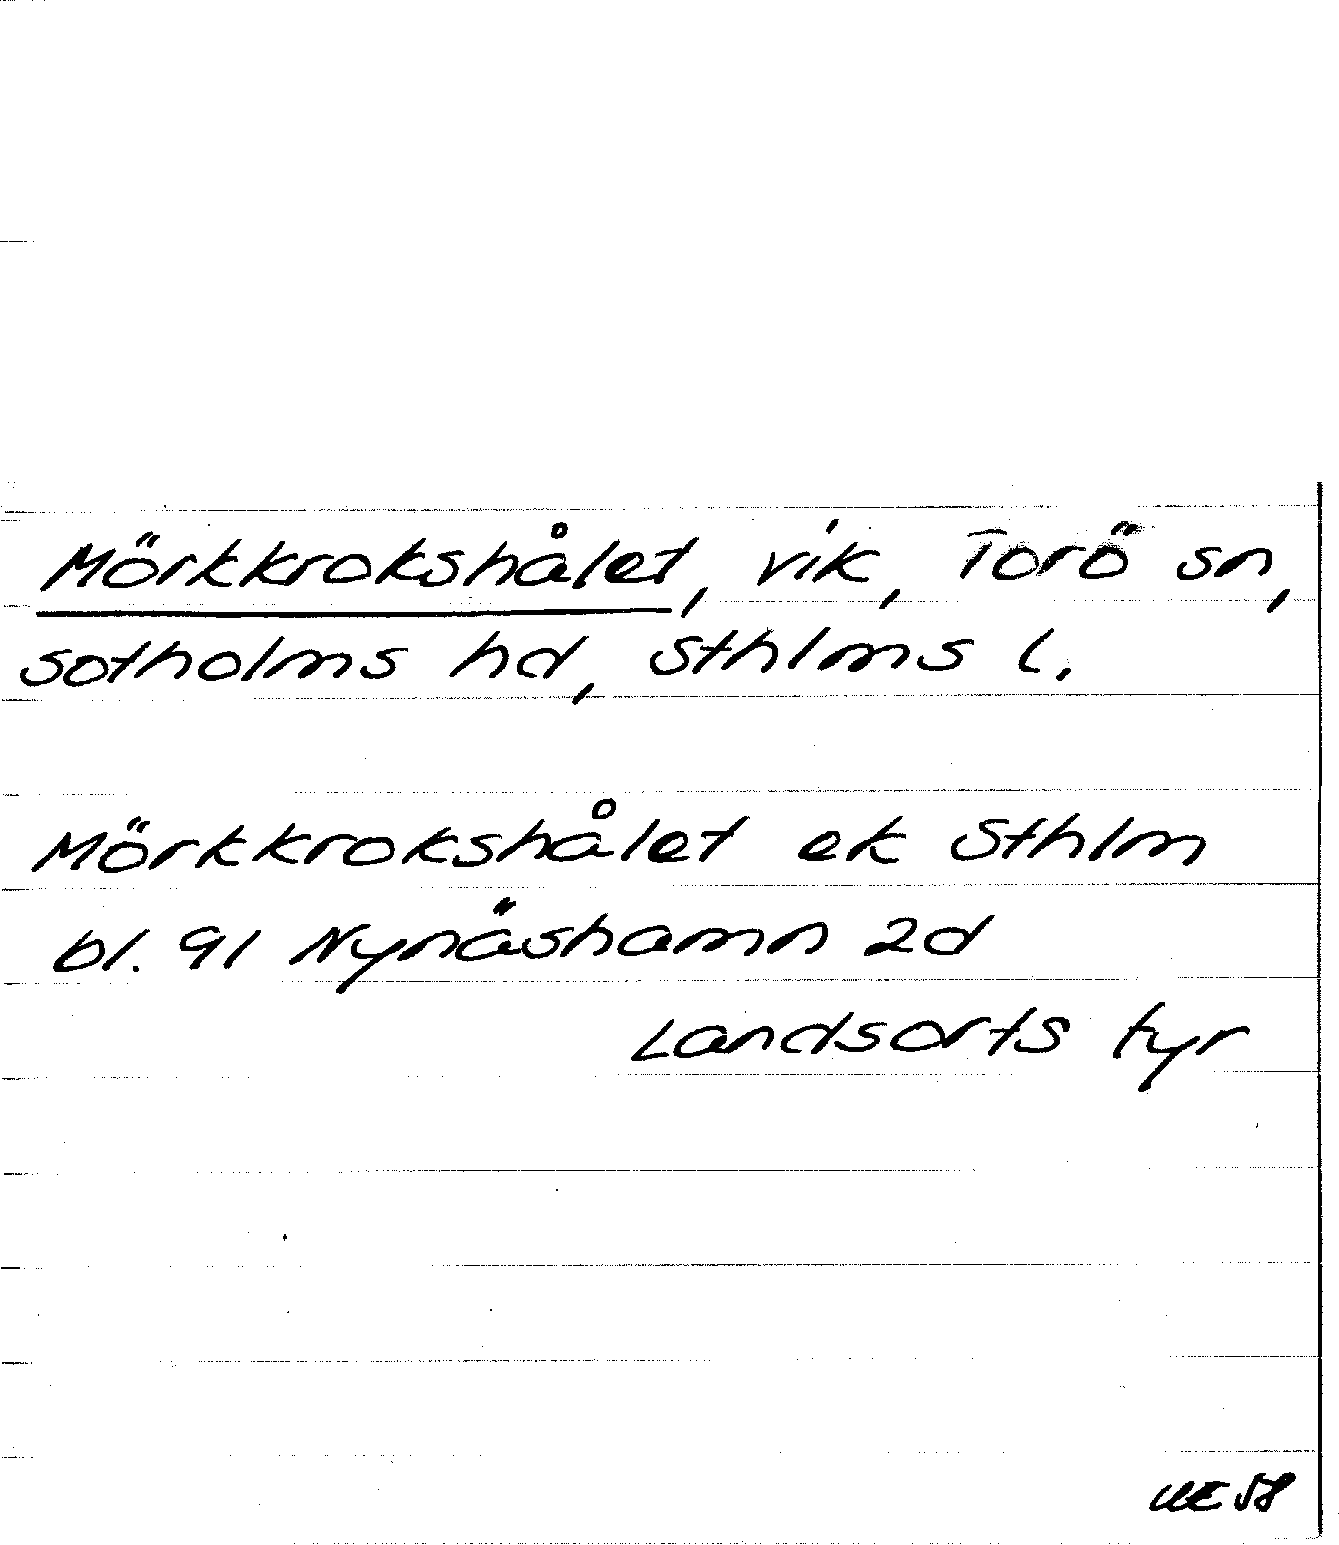 Mörkkrokshålet, vik, Torö sn,
Sotholms hd, Sthlms l.
Mörkkrokshålet ek Sthlm
bl. 91 Nynäshamn 2d
Landsorts fyr